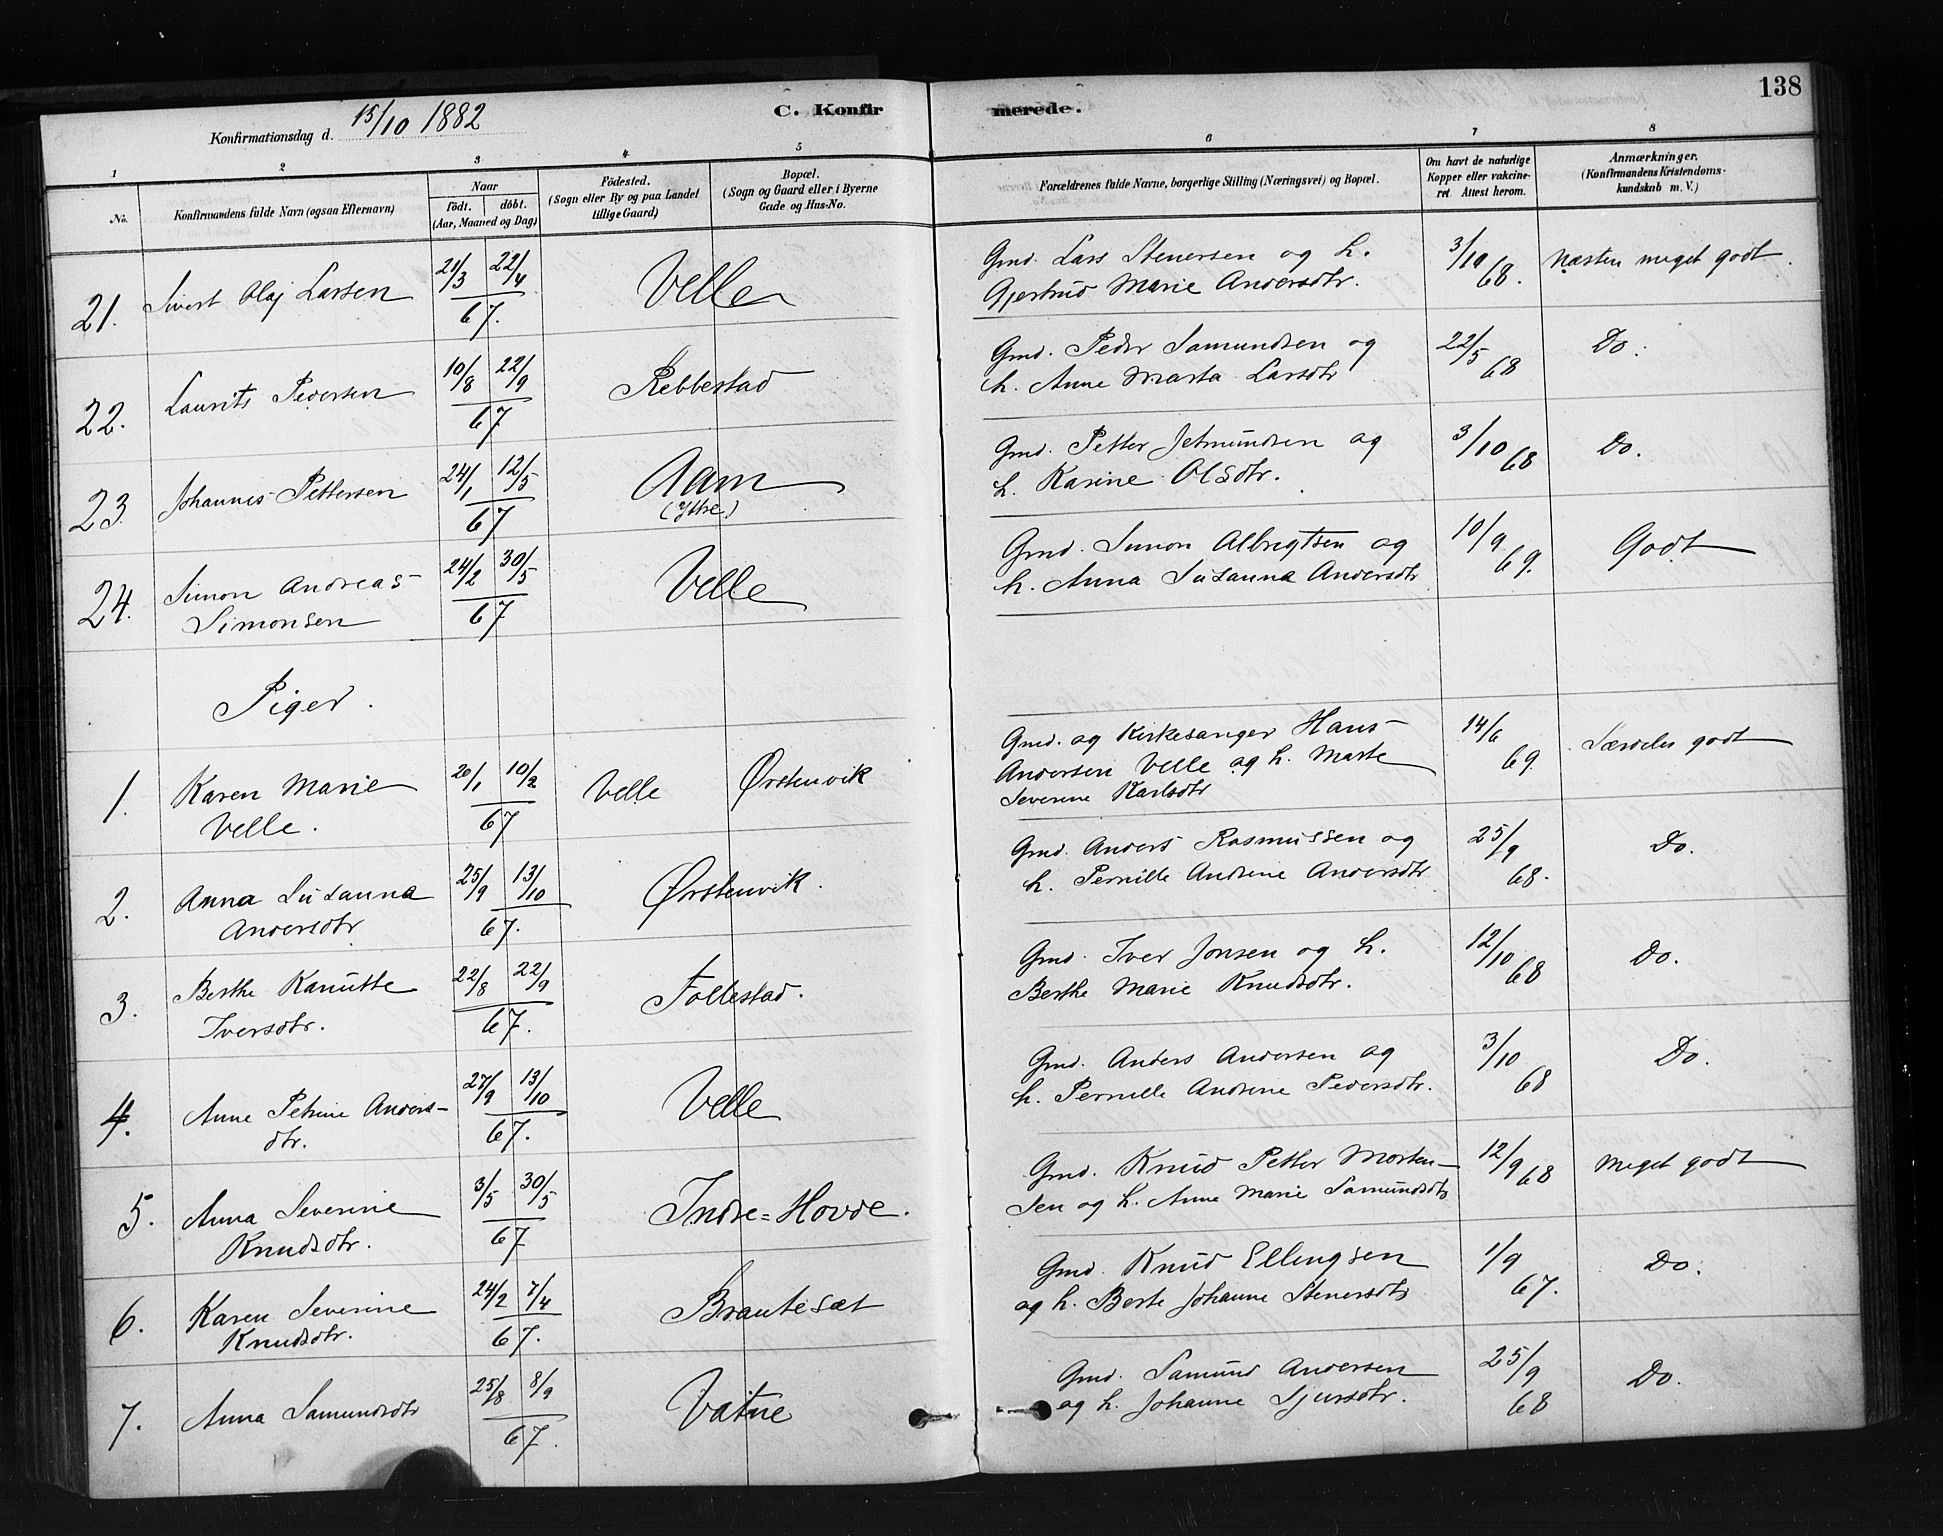 138
Konfirmationsdag d. 15/10 1882
C. Konfirmerede.
1 2 3 4 5 6 7 8
No.
Konfirmandens fulde Navn (ogsaa Efternavn)
Naar
født. døbt.
(Aar, Maaned og Dag)
Fødested.
(Sogn eller By og paa Landet
tillige Gaard)
Bopæl.
(Sogn og Gaard eller i Byerne
Gade og Hus-No.
Forældrenes fulde Navne, borgerlige Stilling (Næringsvei) og Bopæl.
Om havt de naturlige
Kopper eller vakcine-
ret Attest herom.
Anmærkninger.
(Konfirmandens Kristendoms-
kundskab m. V.)
21. Sivert Olaj Larsen 21/3 22/4 67. Velle
Gmd. Lars Stenersen og h.
Gjertrud Marie Andersdtr.
3/10 68. Næsten meget godt
22. Laurits Pedersen 10/8 22/9 67 Rebbestad
Gmd. Peder Samundsen og
h. Anne Marta Larsdtr
22/5 68 Do.
23. Johannes Pettersen 24/1 12/5 67 Aam
(Ytre)
Gmd. Petter Jetmundsen og
h. Karine Olsdtr.
3/10 68 Do.
24. Simon Andreas
Simonsen 24/2 30/5 67 Velle
Gmd. Simon Albrigtsen og
h. Anna Susanna Andersdtr
10/9 69. Godt
Piger.
1. Karen Marie
Velle. 20/1 10/2 67 Velle Ørstenvik
Gmd. og Kirkesanger Hans
Andersen Velle og h. Marte
Severine Karlsdtr
14/6 69. Særdeles godt
2. Anna Susanna
Andersdtr 25/9 13/10 67. Ørstenvik.
Gmd. Anders Rasmussen og
h. Pernille Andrine Andersdtr
25/9 68. Do.
3. Berthe Kanutte
Iversdtr. 22/8 22/9 67. Follestad.
Gmd. Iver Jonsen og h.
Berthe Marie Knudsdtr.
12/10 68 Do.
4. Anne Petrine Anders-
dtr. 27/9 13/10 67. Velle
Gmd. Anders Andersen og
h. Pernille Andrine Pedersdtr.
3/10 68 Do.
5. Anna Severine
Knudsdtr. 3/5 30/5 67 Indre=Hovde.
Gmd. Knud Petter Morten-
sen og h. Anne Marie Samundsdtr
12/9 68 Meget godt
6. Karen Severine
Knudsdtr. 24/2 7/4 67. Brautesæt
Gmd. Knud Ellingsen
og h. Berte Johanne Stenersdtr
1/9 67. Do.
7. Anna Samundsdtr 25/8 8/9 67. Vatne
Gmd. Samund Andersen
og h. Johanne Sjursdtr.
25/9 68 Do.